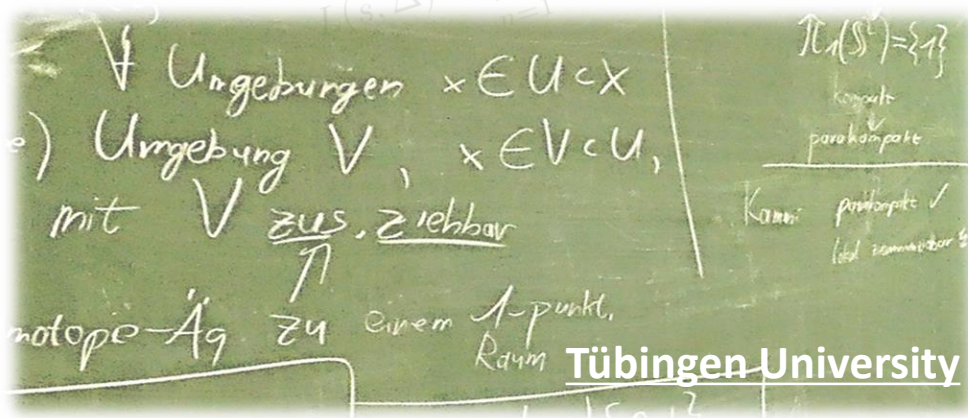 ∀ Umgebungen x ∈ U ⊂ X
) Umgebung V, x ∈ V ⊂ U,
mit V zus.ziehbar
⇑
motopie-Äq zu einem 1-punkt.
Raum
π₁(S²)={1}
kompakt
↓
parakompakt
Kamm: parakompakt ✓
lokal
Tübingen University